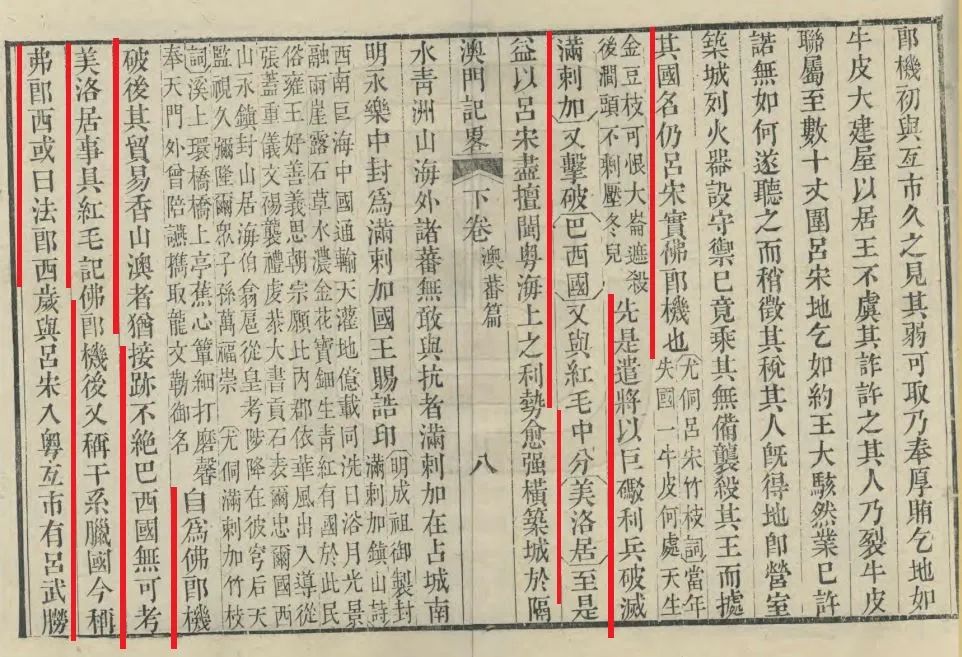 郎機初與互市久之見其弱可取乃奉厚賄乞地如
牛皮大建屋以居王不虞其詐許之其人乃裂牛皮
聯屬至數十丈圍呂宋地乞如約王大駭然業已許
諾無如何遂聽之而稍徵其稅其人旣得地卽營室
築城列火器設守禦已竟乘其無備襲殺其王而據
其國名仍呂宋實佛郎機也
尤侗呂宋竹枝詞當年
失國一牛皮何處天生
金豆枝可恨大崙遮殺
後澗頭不剩壓冬兒
先是遣將以巨礮利兵破滅
滿剌加又擊破巴西國又與紅毛中分美洛居至是
益以呂宋盡擅閩粵海上之利勢愈强橫築城於隔
澳門記畧 下卷 澳蕃篇 八
水青洲山海外諸蕃無敢與抗者滿剌加在占城南
明永樂中封爲滿剌加國王賜誥印
明成祖御製封
滿剌加鎮山詩
西南巨海中國通輸天灌地億載同洗日浴月光景
融雨崖露石草木濃金花寶鈿生青紅有國於此民
俗雍王好善義思朝宗願比內郡依華風出入導從
張蓋重儀文裼襲禮虔恭大書貞石表爾忠爾國西
山永鎮封山居海伯翕扈從皇考陟降在彼穹后天
監視久彌隆爾衆子孫萬福崇 尤侗滿剌加竹枝
詞溪上環橋橋上亭蕉心簟細打磨馨
奉天門外曾陪讌擕取龍文勒御名
自爲佛郎機
破後其貿易香山澳者猶接跡不絕巴西國無可考
美洛居事具紅毛記佛郎機後又稱干系臘國今稱
弗郎西或曰法郎西歲與呂宋入粵互市有呂武勝